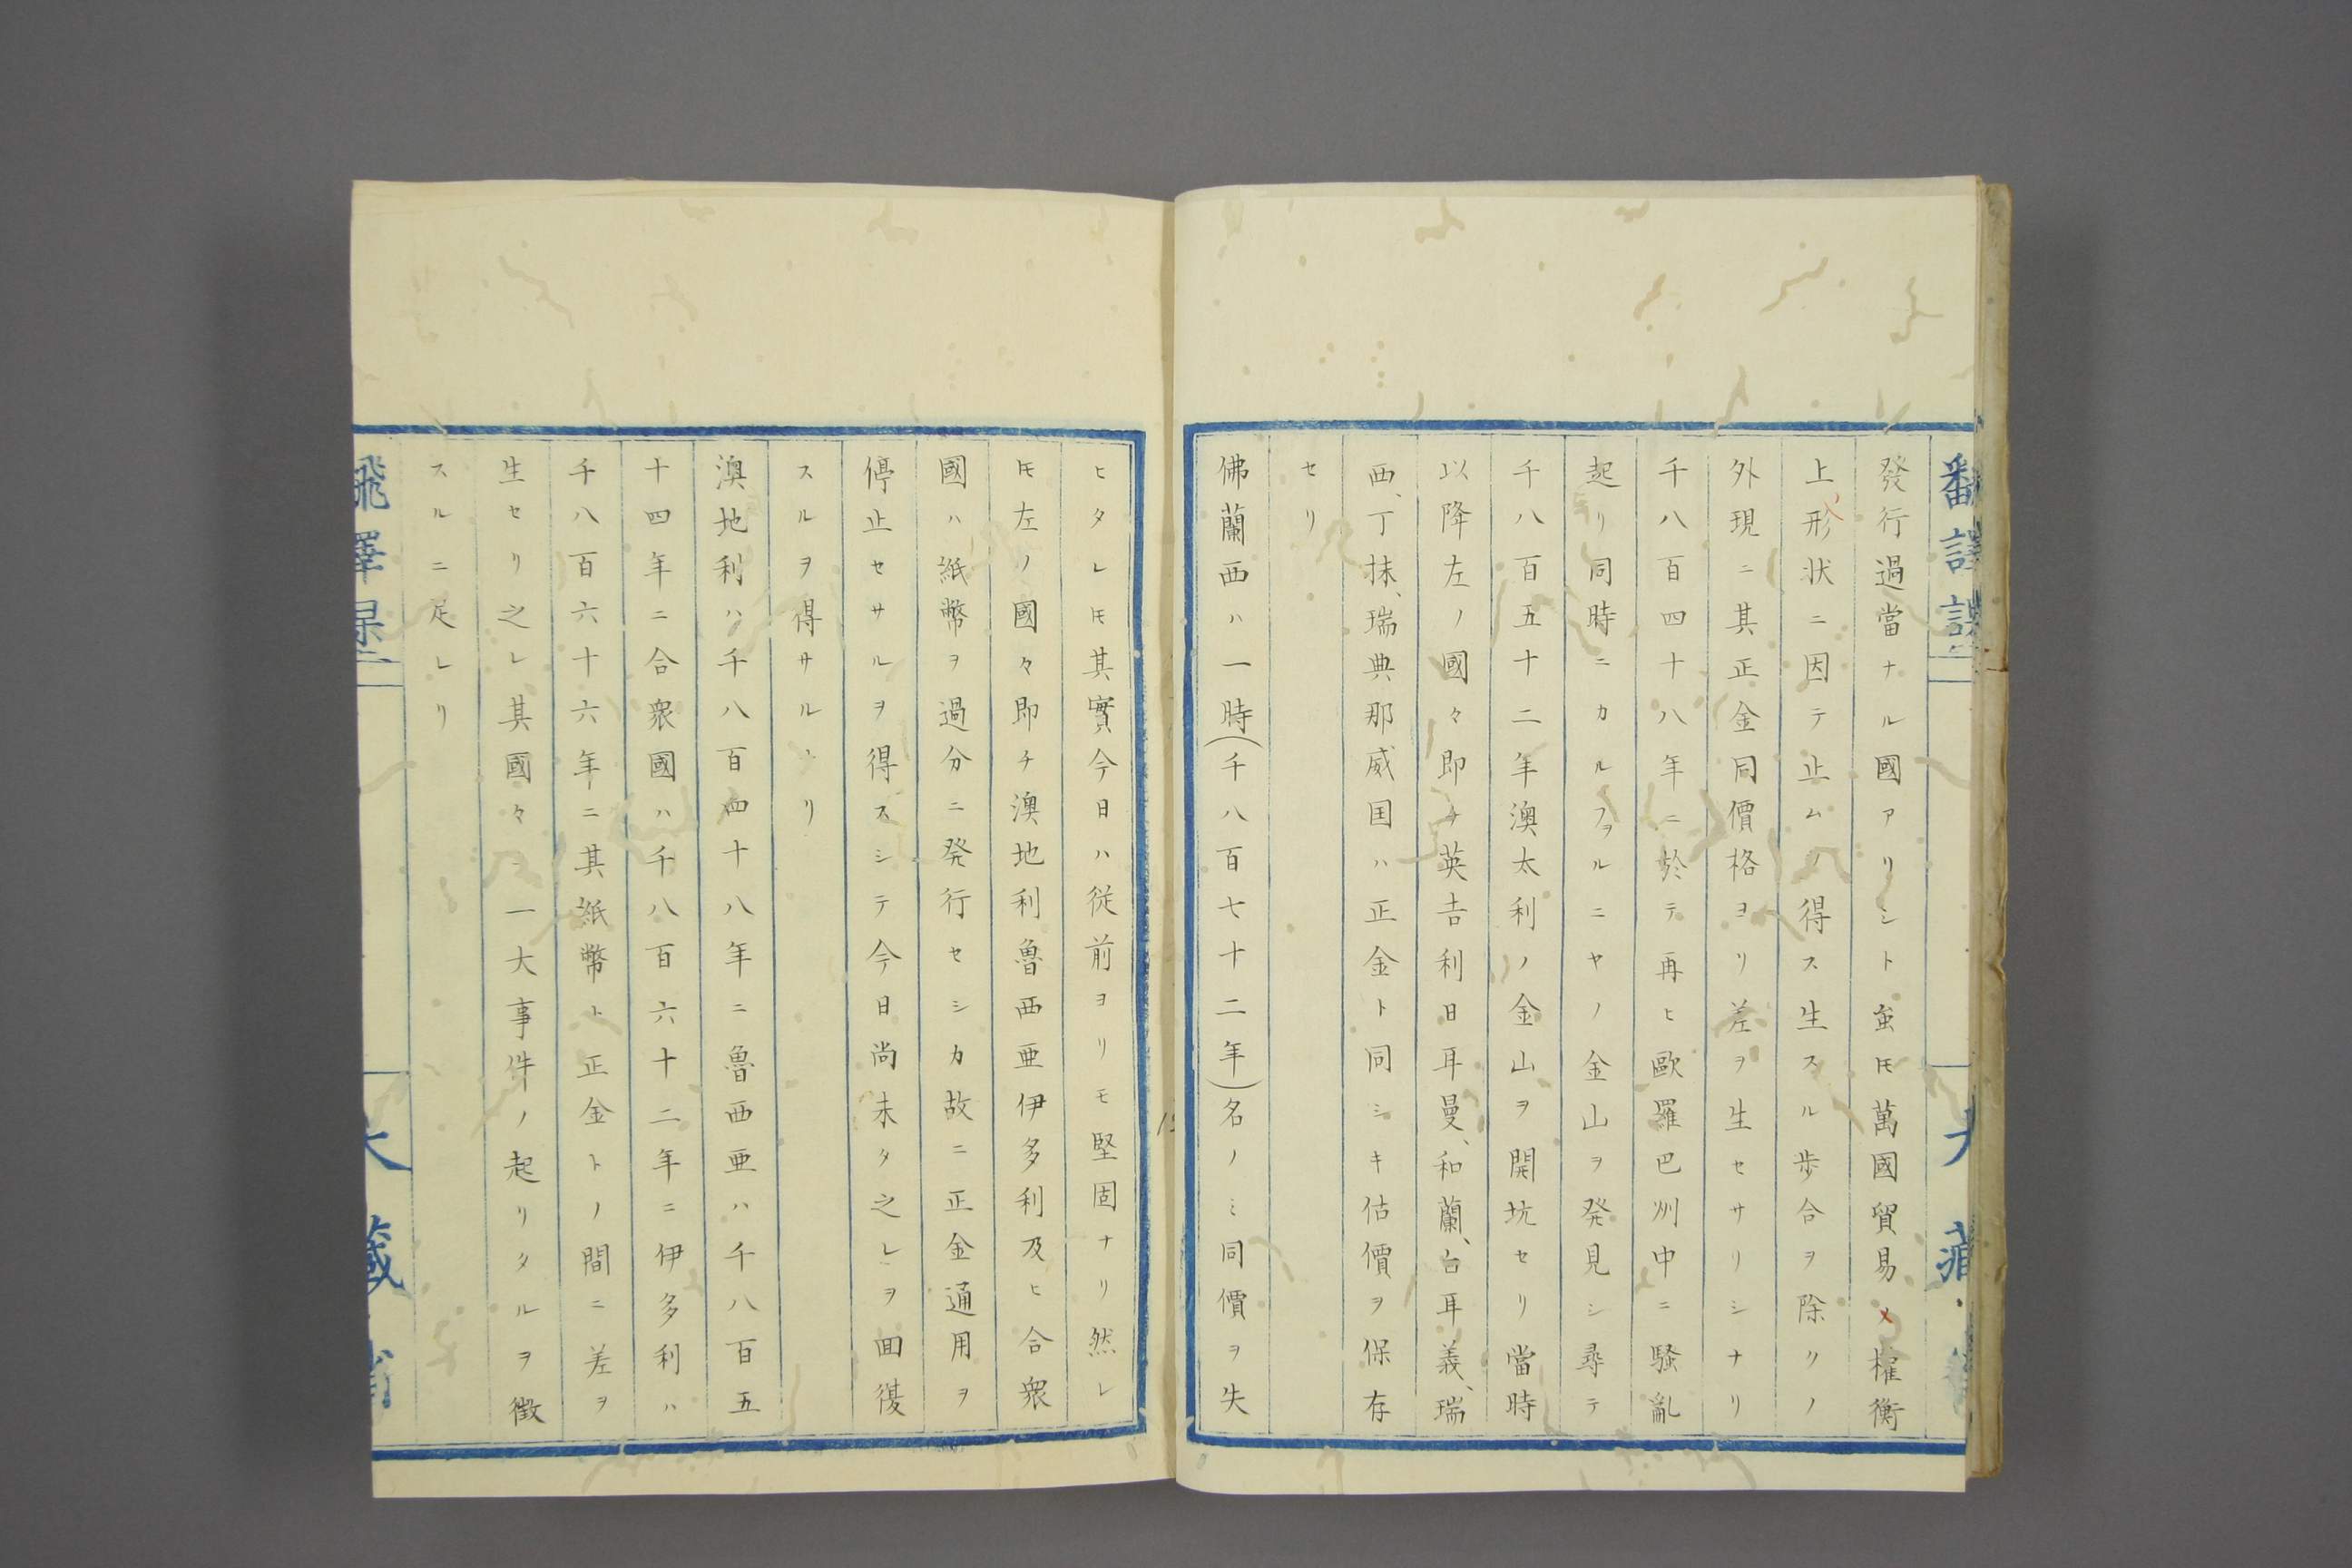 發行過當ナル國アリシト虽𪜈萬國貿易メ權衡
上形状ニ因テ止ムノ得ス生スル歩合ヲ除クノ
外現ニ其正金同價格ヨリ差ヲ生セサリシナリ
千八百四十八年ニ於テ再ヒ歐羅巴州中ニ騒亂
起リ同時ニカルフヲルニヤノ金山ヲ発見シ尋テ
千八百五十二年澳太利ノ金山ヲ開坑セリ當時
以降左ノ國々即チ英吉利日耳曼、和蘭、白耳義、瑞
西、丁抹、瑞典那威国ハ正金ト同シキ估價ヲ保存
セリ
佛蘭西ハ一時(千八百七十二年)名ノミ同價ヲ失
ヒタレ𪜈其實今日ハ従前ヨリモ堅固ナリ然レ
𪜈左ノ國々即チ澳地利魯西亜伊多利及ヒ合衆
國ハ紙幣ヲ過分ニ発行セシカ故ニ正金通用ヲ
停止セサルヲ得スシテ今日尚未タ之レヲ回復
スルヲ得サルナリ
澳地利ハ千八百四十八年ニ魯西亜ハ千八百五
十四年ニ合衆國ハ千八百六十二年ニ伊多利ハ
千八百六十六年ニ其紙幣ト正金トノ間ニ差ヲ
生セリ之レ其國々ニ一大事件ノ起リタルヲ徴
スルニ足レリ